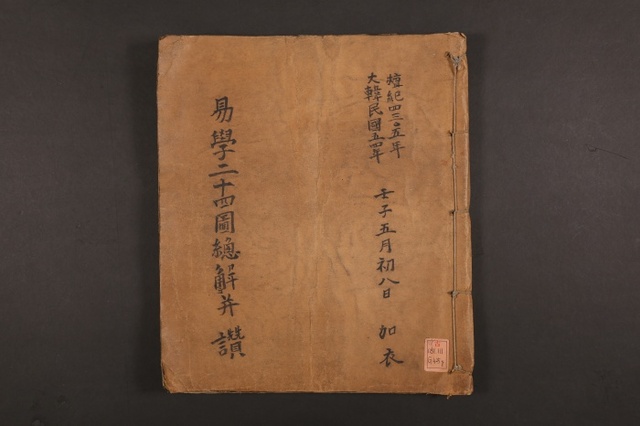 檀紀四三〇五年
大韓民國五四年
壬子五月初八日 加衣
易學二十四圖總解并讚